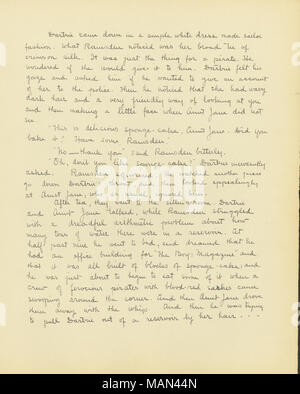 Dartrie came down in a simple white dress made sailor
fashion. What Ramsden noticed was her broad tie of
crimson silk. It was just the thing for a pirate. He
wondered if she would give it to him. Dartrie felt his
gaze and asked him if he wanted to give an account
of her to the police. Then he noticed that she had very
dark hair and a very friendly way of looking at you
and then making a little face when Aunt Jane did not
see.
"This is delicious sponge-cake, Aunt Jane. Did you
bake it? Have some Ramsden."
"No—thank you" said Ramsden bitterly.
"Oh, don't you like sponge cake?" Dartrie innocently
asked. Ramsden watched another piece
go down Dartrie's throat, then looked appealingly
at Aunt Jane, who
After tea, they went to the sitting room. Dartrie
and Aunt Jane talked, while Ramsden struggled
with a dreadful arithmetic problem about how
many tons of water there were in a reservoir. At
half past nine he went to bed, and dreamed that he
had an office building for the Boys' Magazine and
that it was all built of blocks of sponge-cake, and
he was just about to begin to eat some of it when a
crew of ferocious pirates with blood-red sashes came
swooping around the corner. And then Aunt Jane drove
them away with the whip. And then he was trying
to pull Dartrie out of a reservoir by her hair . . .
alamy
Image ID: MAN44N
www.alamy.com